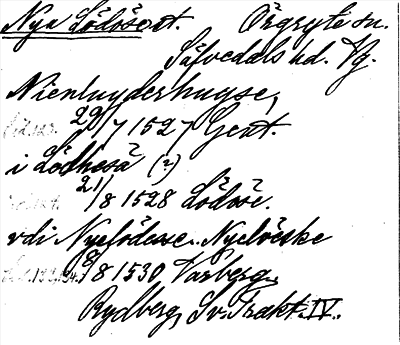 Nya Lödöse st. Örgryte sn.
Säfvedals hd. Vg.
Nienluyderhuyse,
29/7 1527 Gent.
i Lödhesä (?)
21/8 1528 Lödöse.
vdi Nyelödesse. Nyelöeske
8/8 1530 Varberg.
Rydberg, Sv. Trakt. IV.